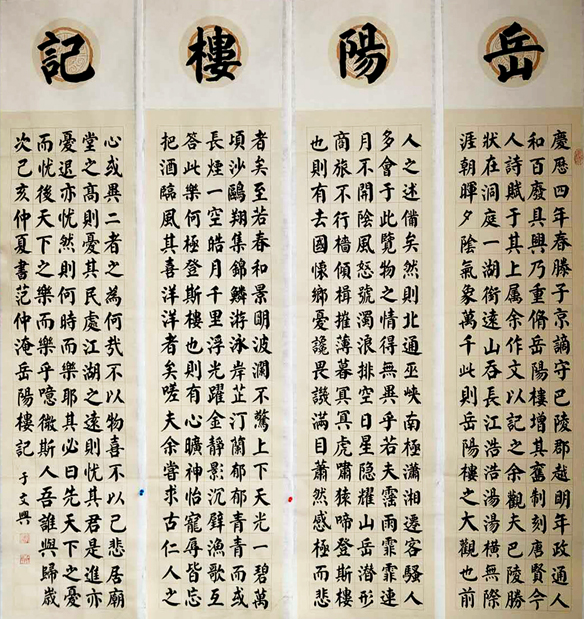 岳陽樓記
慶曆四年春滕子京謫守巴陵郡越明年政通人
和百廢具興乃重脩岳陽樓增其舊制刻唐賢今
人詩賦于其上属余作文以記之余觀夫巴陵勝
狀在洞庭一湖銜遠山吞長江浩浩湯湯橫無際
涯朝暉夕陰氣象萬千此則岳陽樓之大觀也前
人之述備矣然則北通巫峽南極瀟湘遷客騷人
多會于此覽物之情得無異乎若夫霪雨霏霏連
月不開陰風怒號濁浪排空日星隐耀山岳潜形
商旅不行檣傾楫摧薄暮冥冥虎嘯猿啼登斯樓
也則有去國懷鄉憂讒畏譏滿目蕭然感極而悲
者矣至若春和景明波瀾不驚上下天光一碧萬
頃沙鷗翔集錦鱗游泳岸芷汀蘭郁郁青青而或
長煙一空皓月千里浮光躍金靜影沉璧漁歌互
答此樂何極登斯樓也則有心曠神怡寵辱皆忘
把酒臨風其喜洋洋者矣嗟夫余嘗求古仁人之
心或異二者之為何哉不以物喜不以己悲居廟
堂之高則憂其民處江湖之遠則忧其君是進亦
憂退亦忧然則何時而樂耶其必曰先天下之憂
而忧後天下之樂而樂乎噫微斯人吾誰與歸歲
次己亥仲夏書范仲淹岳陽樓記
于文興